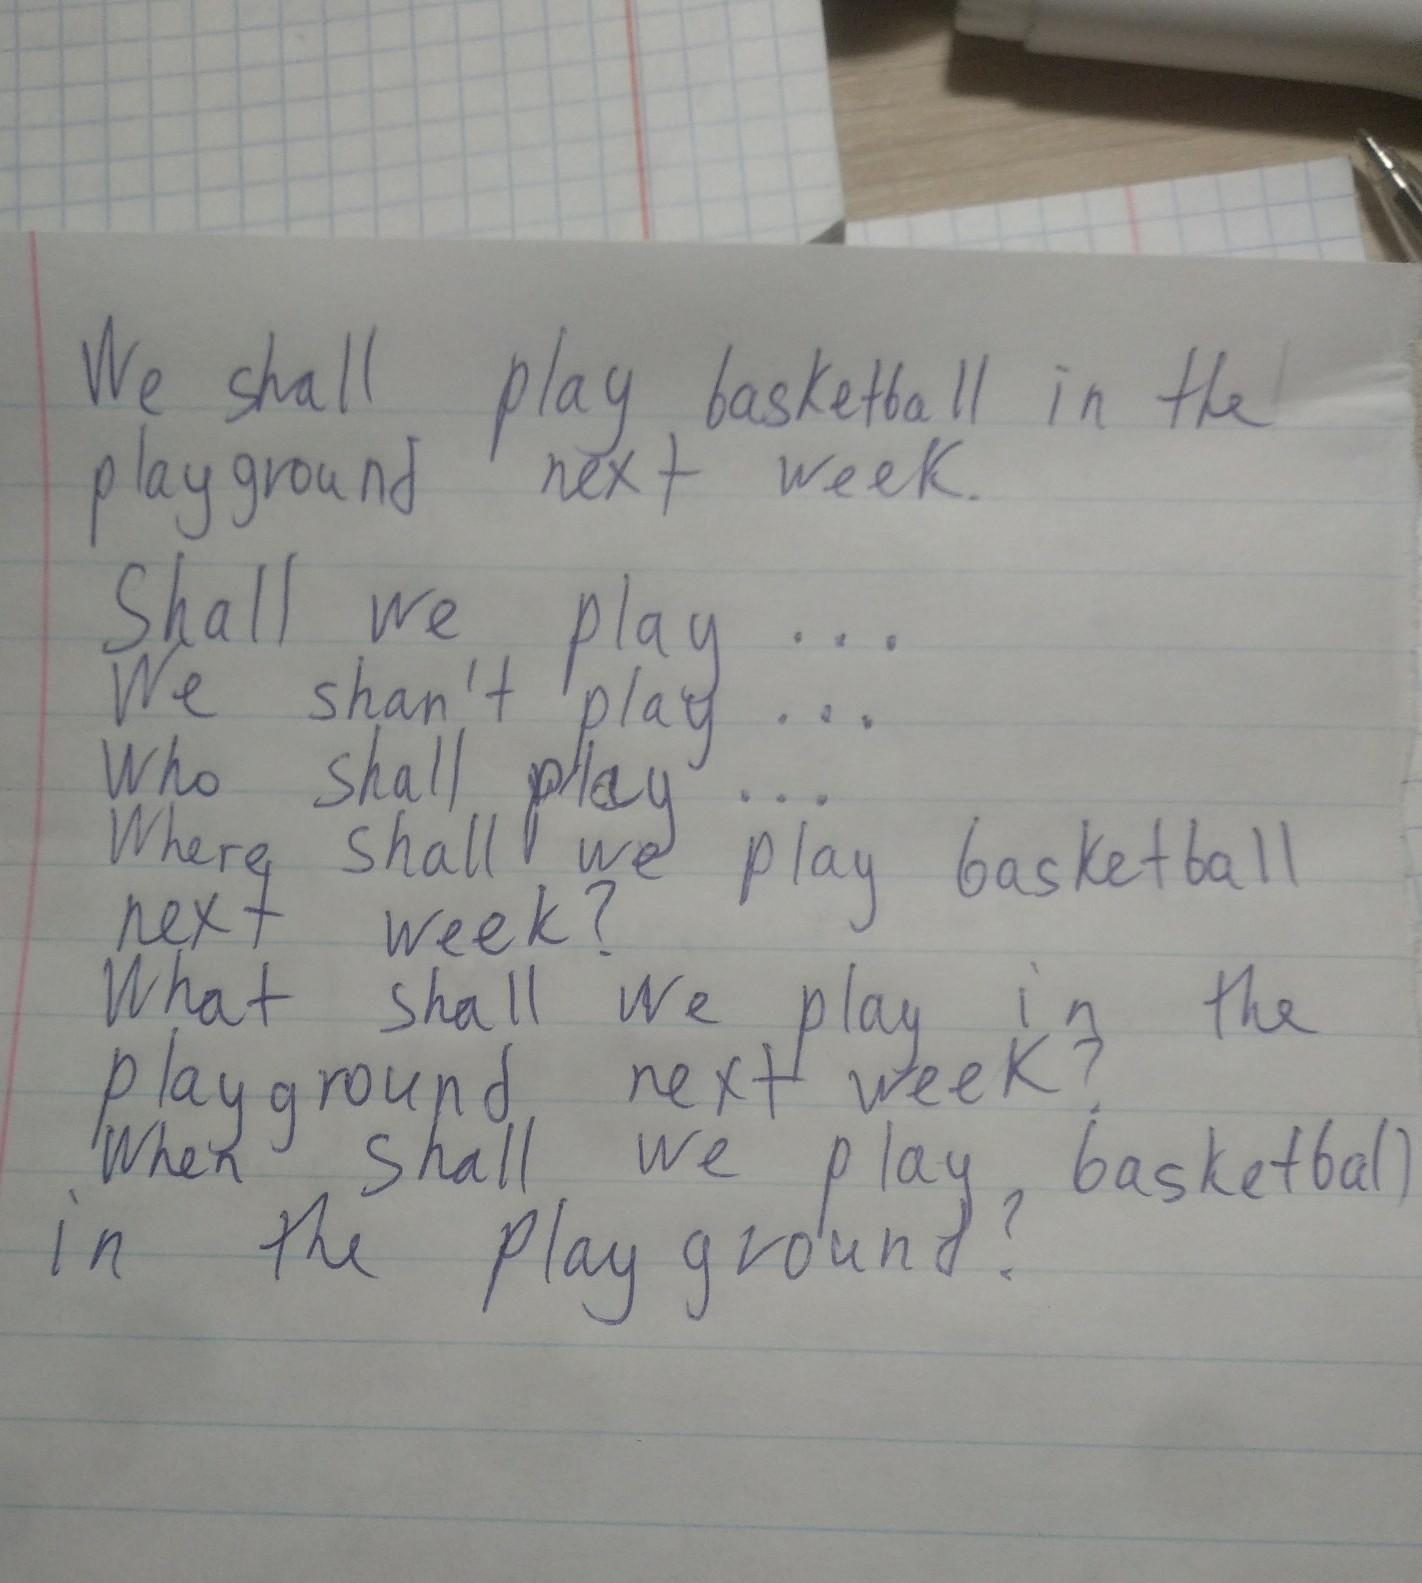 We shall play basketball in the
playground next week.
Shall we play ...
We shan't play ...
Who shall play ...
Where shall we play basketball
next week?
What shall we play in the
playground next week?
When shall we play basketball
in the playground?